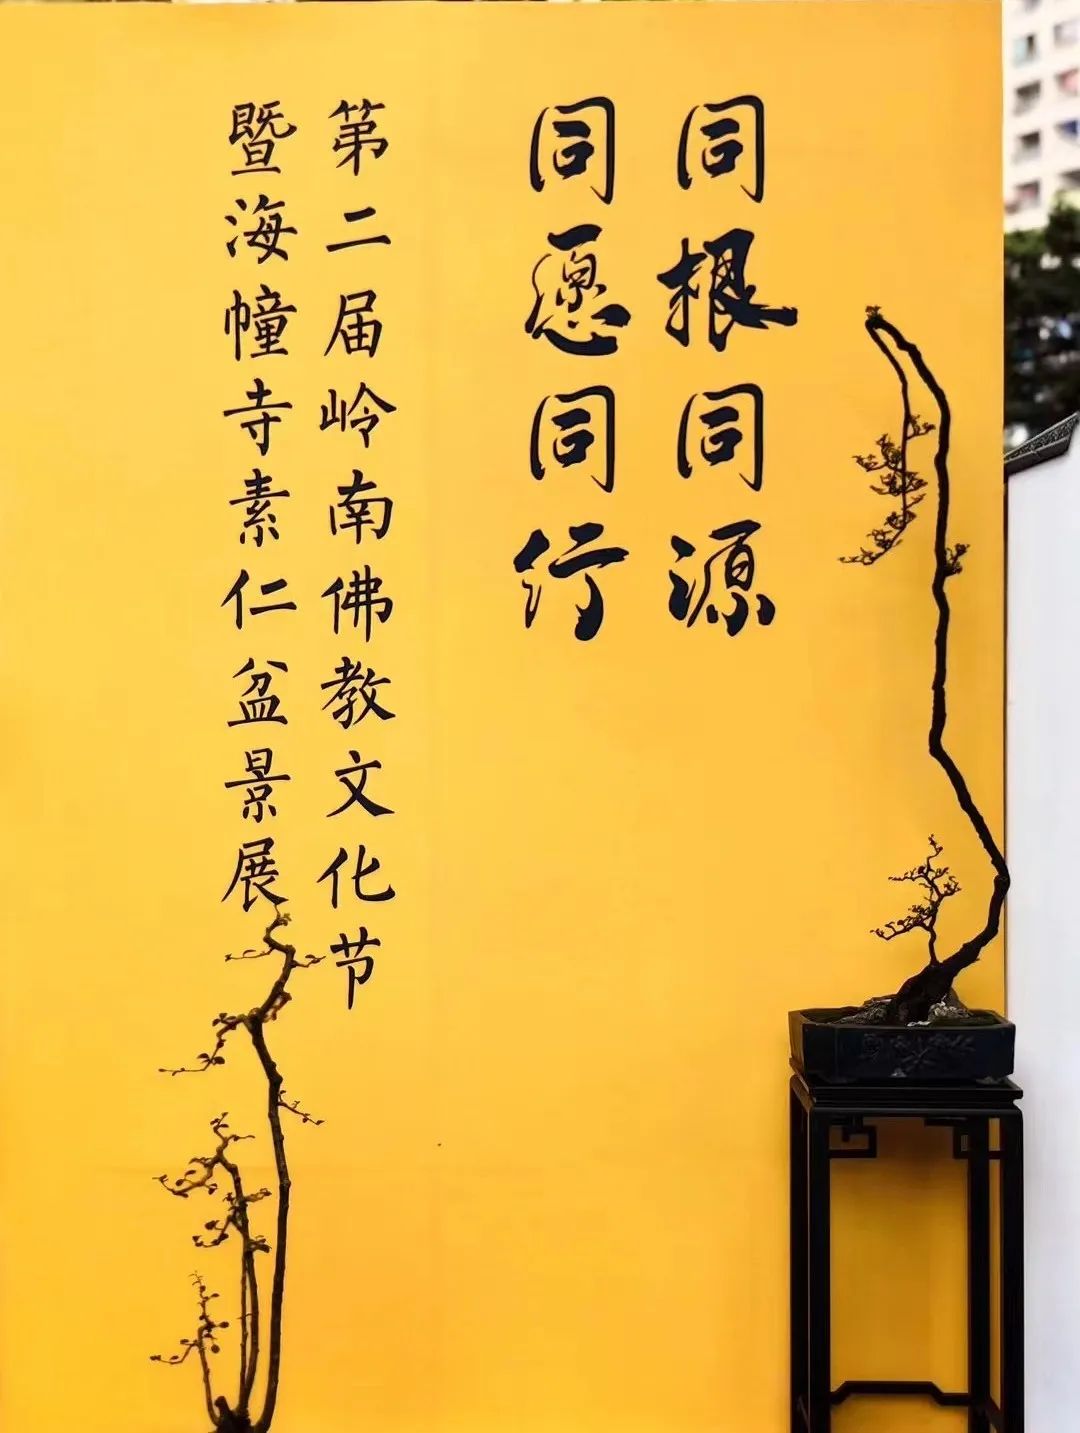 同根同源
同愿同行
第二届岭南佛教文化节
暨海幢寺素仁盆景展